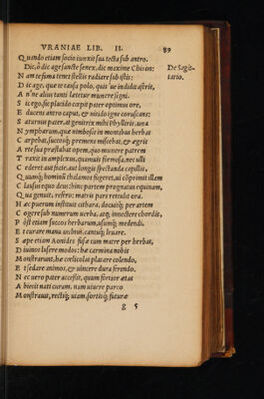 VRANIAE LIB. II. 89
Quando etiam socio iunxit sua tecta sub antro.
Dic, ô dic age sancte senex, dic maxime Chiron: De Sagit
Nam te fama tenet stellis radiare sub istis: tario.
Dic age, quæ te causa polo, quis'ue indidit astris,
A ne aliàs tanti lætetur munere signi.
Sic ego, sic placido cœpit pater optimus ore,
Et ducens antro caput, & nitido igne coruscans:
Saturnus pater, at genitrix mihi Phyllyrie, una
Nympharum, quæ nimbosis in montibus herbas
Carpebat, succósq; premens miscebat, & ægris
Ate sua præstabat opem, quo munere patrem
Traxit in amplexus, quamuis formosa, nec ulli
Cederet aut facie, aut longis spectanda capillis,
Quamq; hominũ thalamos fugeret, ui cõprimit illam
Clausus equo deus: hinc partem prognatus equinam,
Qua genuit, refero: matris pars retulit ora.
Hac puerum instituit cithara, docuitq; per artem
Cogere sub numerum uerba, atq; innectere chordis,
Põst etiam succos herbarum, usumq; medendi.
Et curare manu uulnus, cantuq; leuare.
Sæpe etiam Aonides fusæ cum matre per herbas,
Diuinos lusere modos: hæ carmina nobis
Monstrarunt, hæ cœlicolas placare colendo,
Et sedare animos, & uincere dura ferendo.
Nec uero pater accessit, quam fortior ætas
Abiecit nati curam, nam uiuere parco
Monstrauit, rectiq; uiam, sortisq; futuræ
g 5